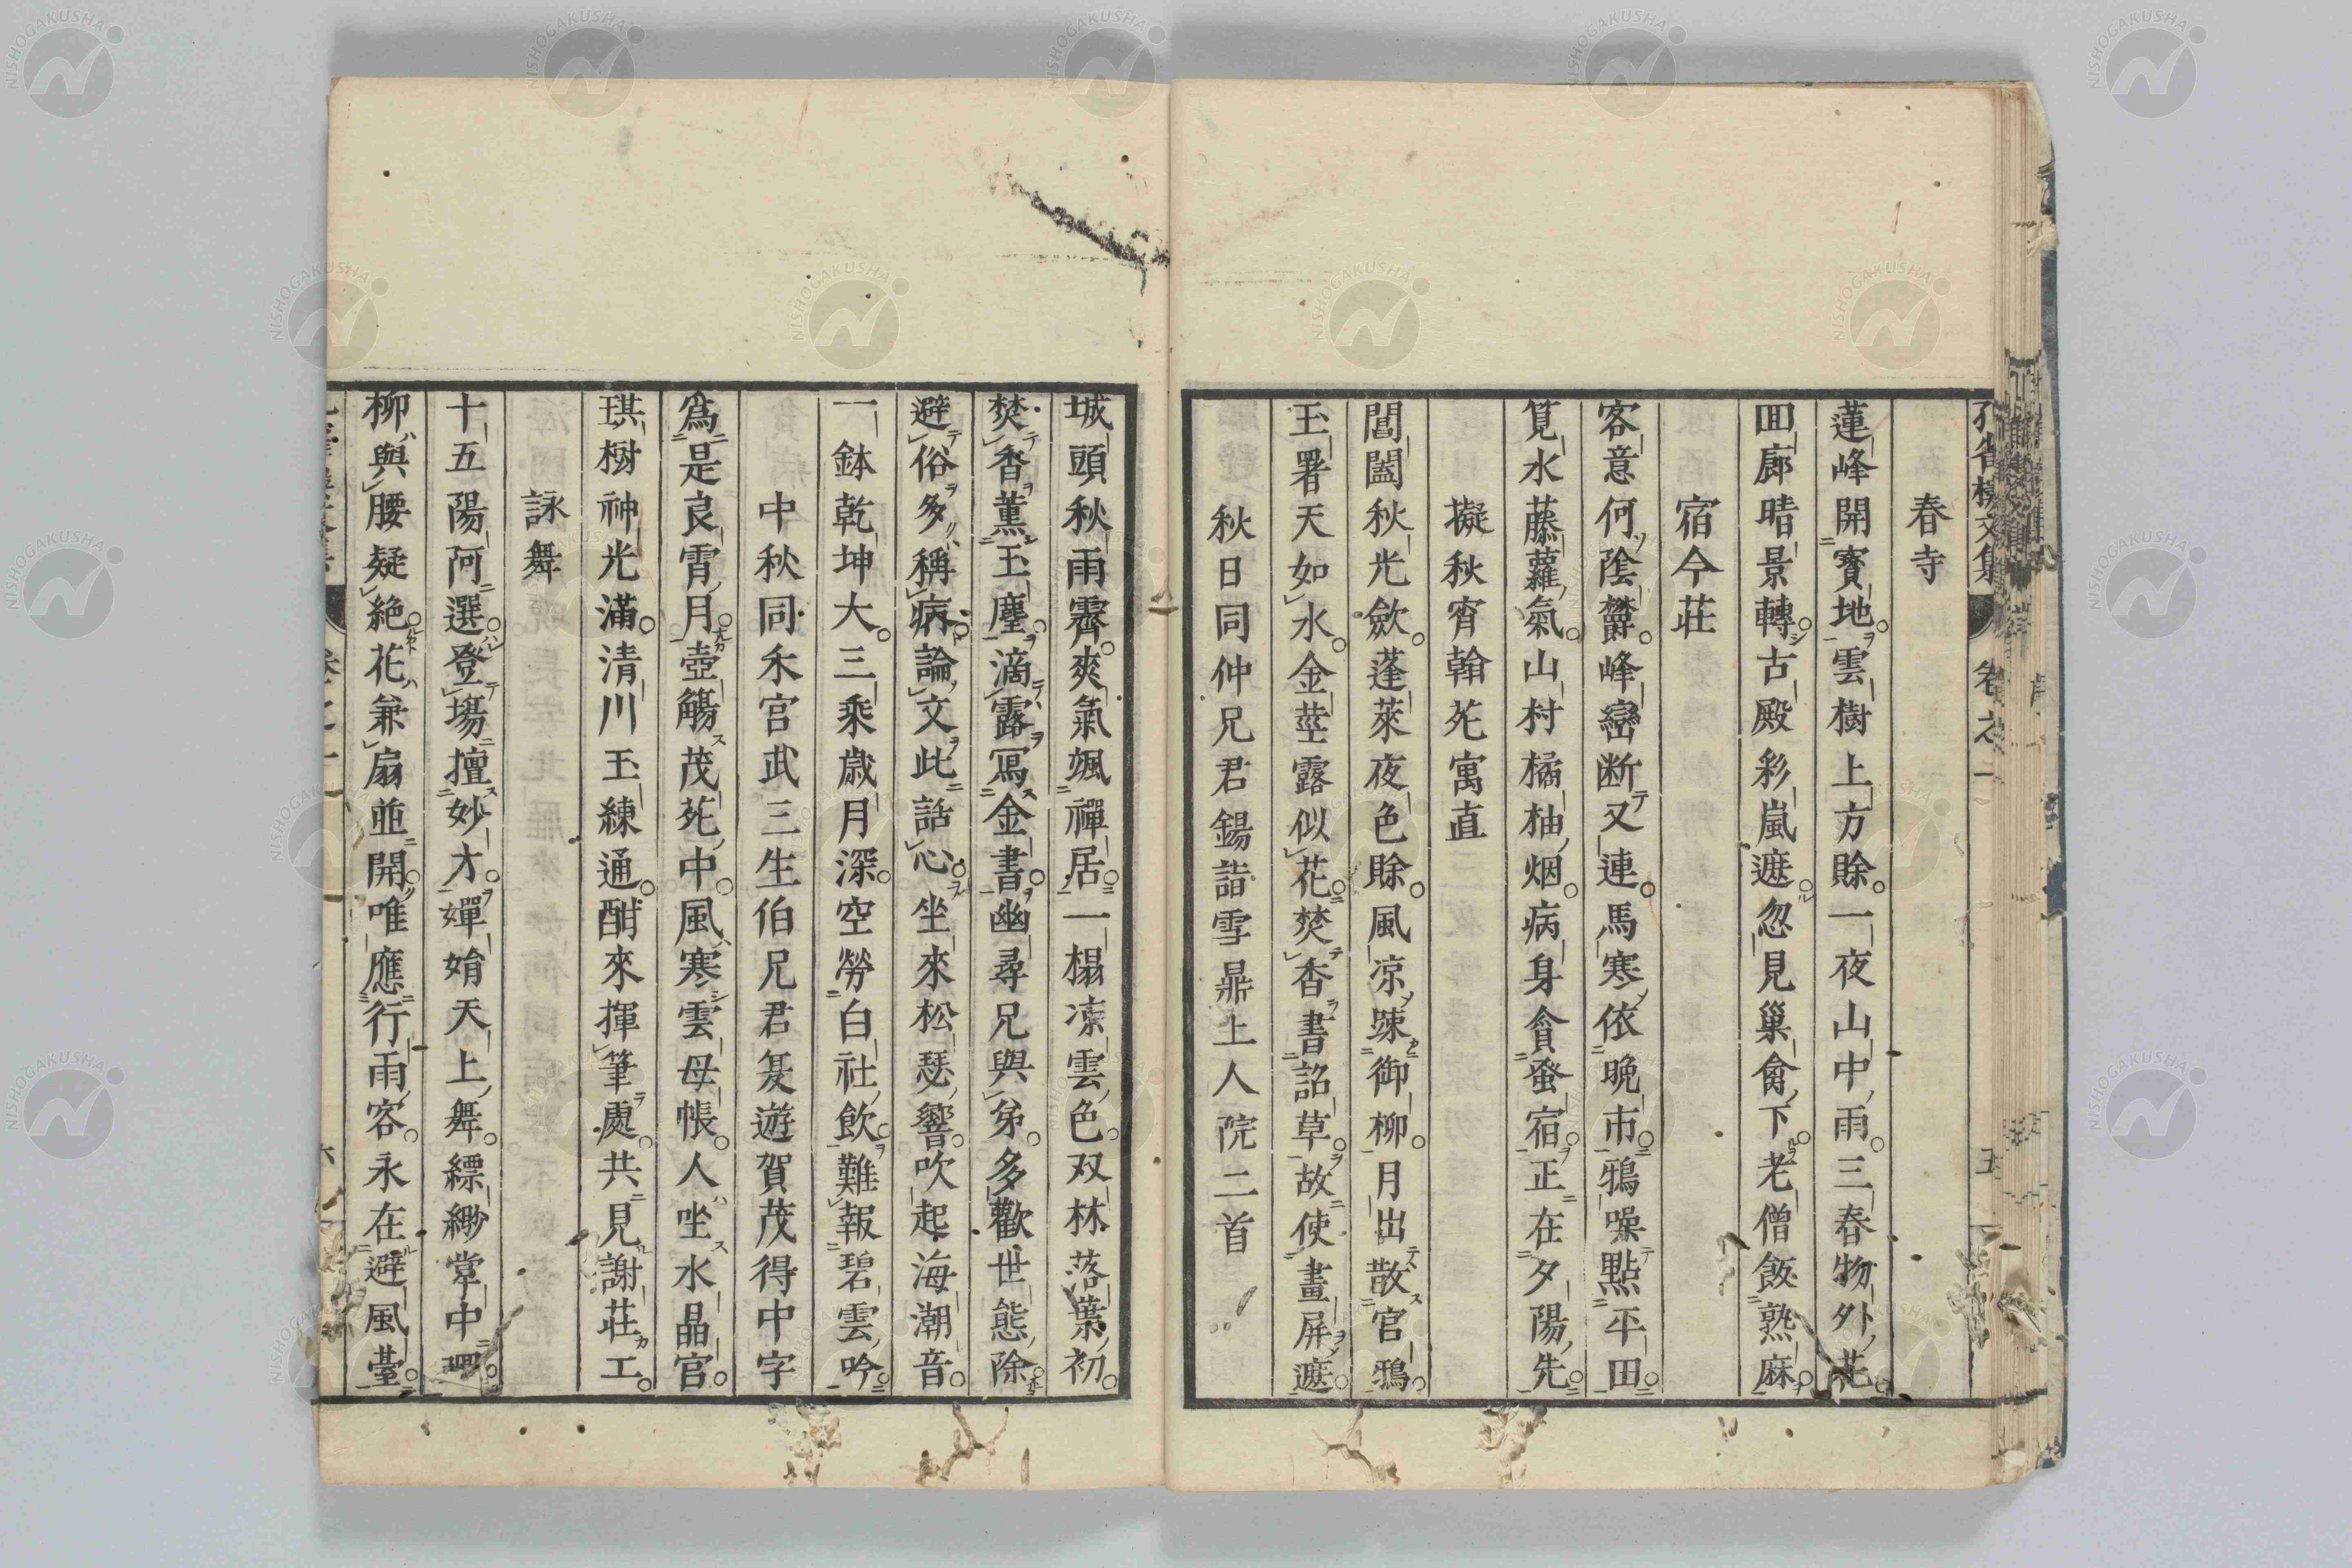 春寺
蓮峰開寳地雲樹上方賖一夜山中雨三春物外花
囬廊晴景轉古殿彩嵐遮忽見巢禽下老僧飯熟麻
宿今莊
客意何陰欝峰巒断又連馬寒依晩市鴉噪點平田
筧水藤蘿氣山村橘柚烟病身貪蚤宿正在夕陽先
擬秋宵翰苑寓直
閶闔秋光歛蓬萊夜色賖風凉踈御柳月出散官鴉
玉署天如水金莖露似花焚香書詔草故使畫屏遮
秋日同仲兄君錫詣雪鼎上人院二首
城頭秋雨霽爽氣颯禪居一榻凉雲色双林落葉初
焚香薫玉麈滴露寫金書幽尋兄與弟多歡世態除
避俗多稱病論文此話心坐來松瑟響吹起海潮音
一鉢乾坤大三乘歳月深空勞白社飲難報碧雲吟
中秋同朩宮武三生伯兄君夌遊賀茂得中字
爲是良霄月壺觴茂苑中風寒雲母帳人坐水晶宮
琪樹神光滿清川玉練通酣來揮筆處共見謝莊工
詠舞
十五陽阿選登場擅妙才嬋娟天上舞縹緲掌中
柳與腰疑絶花兼扇並開唯應行雨客永在避風臺
卷之一
五
NISHOGAKUSHA